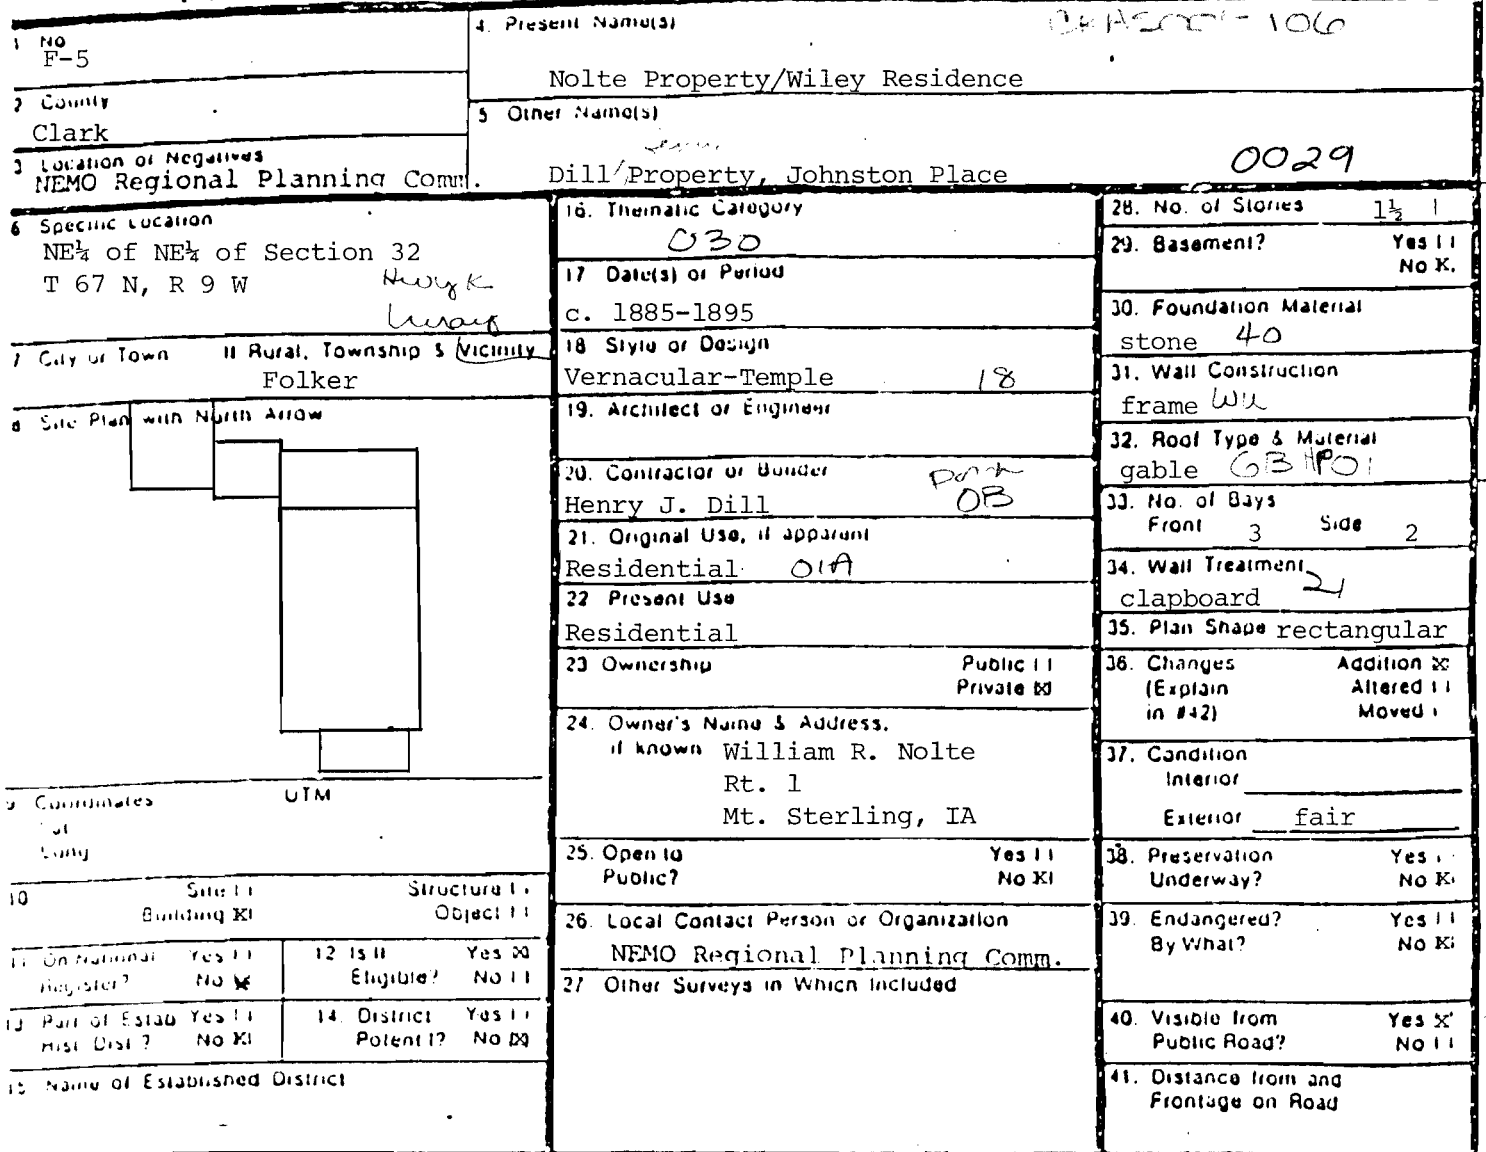 1 No
F-5
2 County
Clark
3 Location of Negatives
NEMO Regional Planning Comm.
4. Present Name(s)
106
Nolte Property/Wiley Residence
5 Other Name(s)
Dill/Property, Johnston Place
0029
6 Specific Location
NE¼ of NE¼ of Section 32
T 67 N, R 9 W
Hwy K
7 City or Town If Rural, Township & Vicinity
Folker
8 Site Plan with North Arrow
9 Coordinates UTM
Lat
Long
10 Site
Structure
Building X
Object
11 On National Register? Yes
No X
12 Is It Eligible? Yes X
No
13 Part of Estab Hist Dist? Yes
No X
14. District Potent'l? Yes
No X
15 Name of Established District
16. Thematic Category
030
17 Date(s) or Period
c. 1885-1895
18 Style or Design
Vernacular-Temple 18
19. Architect or Engineer
20. Contractor or Builder
Henry J. Dill
Porch
OB
21. Original Use, if apparent
Residential 01A
22 Present Use
Residential
23 Ownership Public
Private X
24. Owner's Name & Address, if known
William R. Nolte
Rt. 1
Mt. Sterling, IA
25. Open to Public? Yes
No X
26. Local Contact Person or Organization
NEMO Regional Planning Comm.
27 Other Surveys in Which Included
28. No. of Stories 1½
29. Basement? Yes
No X
30. Foundation Material
stone 40
31. Wall Construction
frame
32. Roof Type & Material
gable GB
33. No. of Bays
Front 3 Side 2
34. Wall Treatment
clapboard 21
35. Plan Shape rectangular
36. Changes (Explain in #42)
Addition X
Altered
Moved
37. Condition
Interior
Exterior fair
38. Preservation Underway? Yes
No X
39. Endangered? By What? Yes
No X
40. Visible from Public Road? Yes X
No
41. Distance from and
Frontage on Road